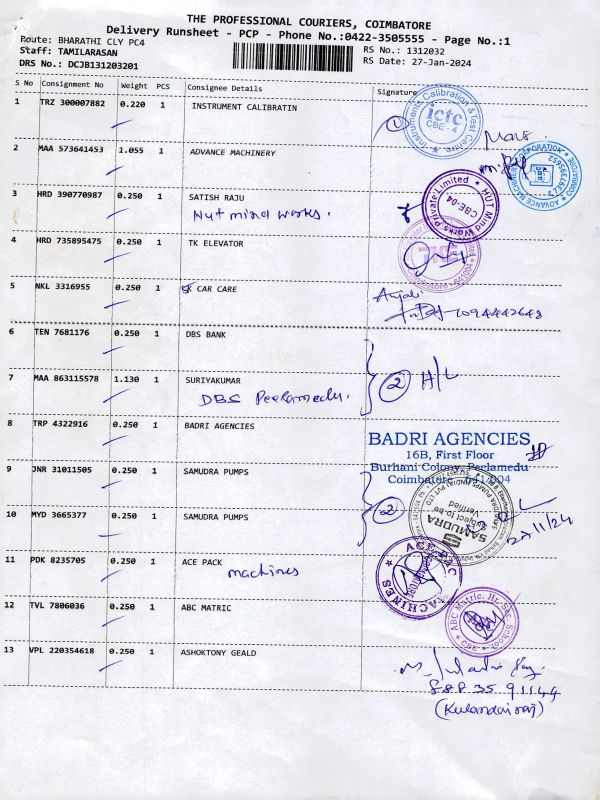 THE PROFESSIONAL COURIERS, COIMBATORE
Delivery Runsheet - PCP - Phone No.:0422-3505555 - Page No.:1
Route: BHARATHI CLY PC4
RS No.: 1312032
Staff: TAMILARASAN
RS Date: 27-Jan-2024
DRS No.: DCJB131203201
S No Consignment No Weight PCS Consignee Details Signature
1 TRZ 300007882 0.220 1 INSTRUMENT CALIBRATIN
Instruments Calibration & Test Centre
ictc
CBE-4
2 MAA 573641453 1.055 1 ADVANCE MACHINERY
3 HRD 390770987 0.250 1 SATISH RAJU
Nut mind works.
HUT Mind Works Private Limited
CBE-04
4 HRD 735895475 0.250 1 TK ELEVATOR
5 NKL 3316955 0.250 1 SK CAR CARE
Anjali
6 TEN 7681176 0.250 1 DBS BANK
7 MAA 863115578 1.130 1 SURIYAKUMAR
DBS Peelamedu.
2 H/L
8 TRP 4322916 0.250 1 BADRI AGENCIES
BADRI AGENCIES
16B, First Floor
Burhani Colony, Peelamedu
Coimbatore - 641 004
9 JNR 31011505 0.250 1 SAMUDRA PUMPS
10 MYD 3665377 0.250 1 SAMUDRA PUMPS
2
SAMUDRA
Subject to be
Verified
11 PDK 8235705 0.250 1 ACE PACK
machines
ACE PAC MACHINES
COIMBATORE
12 TVL 7806036 0.250 1 ABC MATRIC
ABC Matric. Hr. Sec. School
CBE
13 VPL 220354618 0.250 1 ASHOKTONY GEALD
88835 91144
(Kulandairaj)